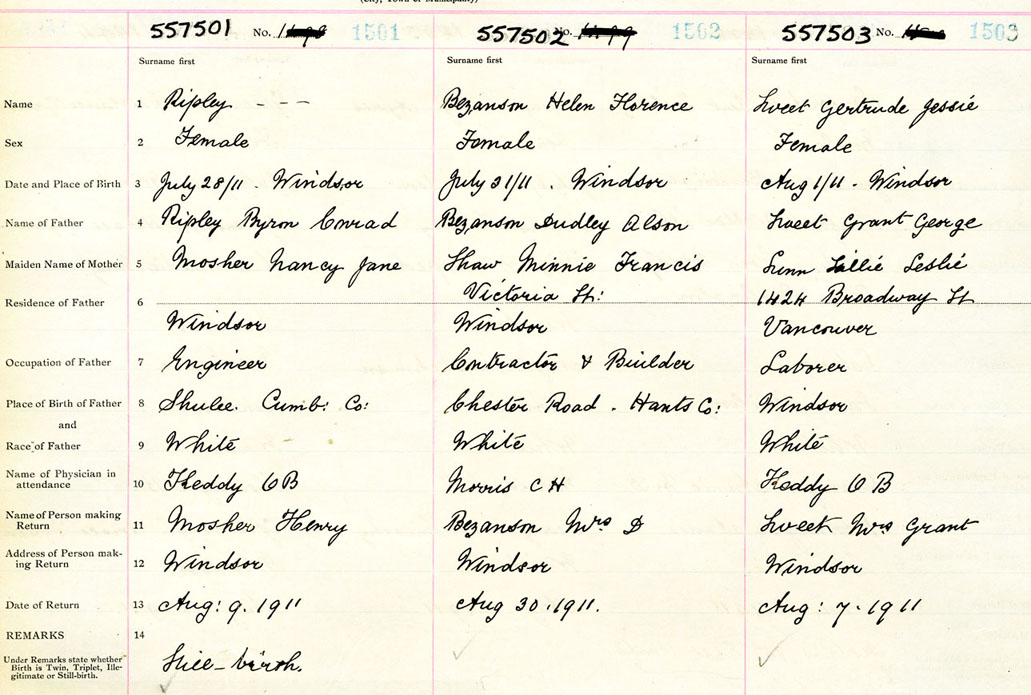 (City, Town or Municipality)
557501 No. 1501 557502 No. 1502 557503 No. 1503
Surname first Surname first Surname first
Name 1 Ripley - - - Bezanson Helen Florence Sweet Gertrude Jessie
Sex 2 Female Female Female
Date and Place of Birth 3 July 28/11 . Windsor July 31/11 . Windsor Aug 1/11 . Windsor
Name of Father 4 Ripley Byron Conrad Bezanson Dudley Alson Sweet Grant George
Maiden Name of Mother 5 Mosher Nancy Jane Shaw Minnie Francis Lunn Lillie Leslie
Victoria St: 1424 Broadway St
Residence of Father 6
Windsor Windsor Vancouver
Occupation of Father 7 Engineer Contractor & Biuilder Laborer
Place of Birth of Father 8 Shulee. Cumb: Co: Chester Road . Hants Co: Windsor
and
Race of Father 9 White White White
Name of Physician in
attendance 10 Keddy O B Morris C H Keddy O B
Name of Person making
Return 11 Mosher Henry Bezanson Mrs D Sweet Mrs Grant
Address of Person mak-
ing Return 12 Windsor Windsor Windsor
Date of Return 13 Aug: 9. 1911 Aug 30 . 1911. Aug: 7. 1911
REMARKS 14
Under Remarks state whether
Birth is Twin, Triplet, Ille-
gitimate or Still-birth.
Still-birth.